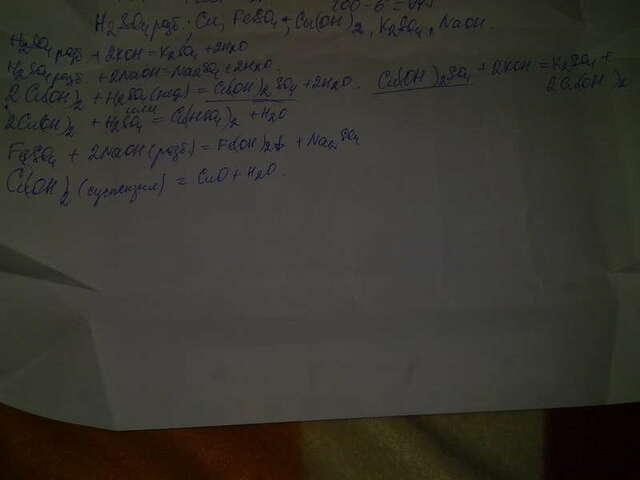 100-6=94%
H2SO4 разб, Cu, FeSO4, Cu(OH)2, K2SO4, NaOH.
H2SO4 разб + 2KOH = K2SO4 + 2H2O
H2SO4 разб. + 2NaOH = Na2SO4 + 2H2O.
2Cu(OH)2 + H2SO4 (нед) = Cu(OH)2SO4 + 2H2O. Cu(OH)2SO4 + 2KOH = K2SO4 +
2Cu(OH)2
2Cu(OH)2 + H2SO4 = Cu(HSO4)2 + H2O
FeSO4 + 2NaOH (разб) = Fe(OH)2↓ + Na2SO4
Cu(OH)2 (суспензия) = CuO + H2O.